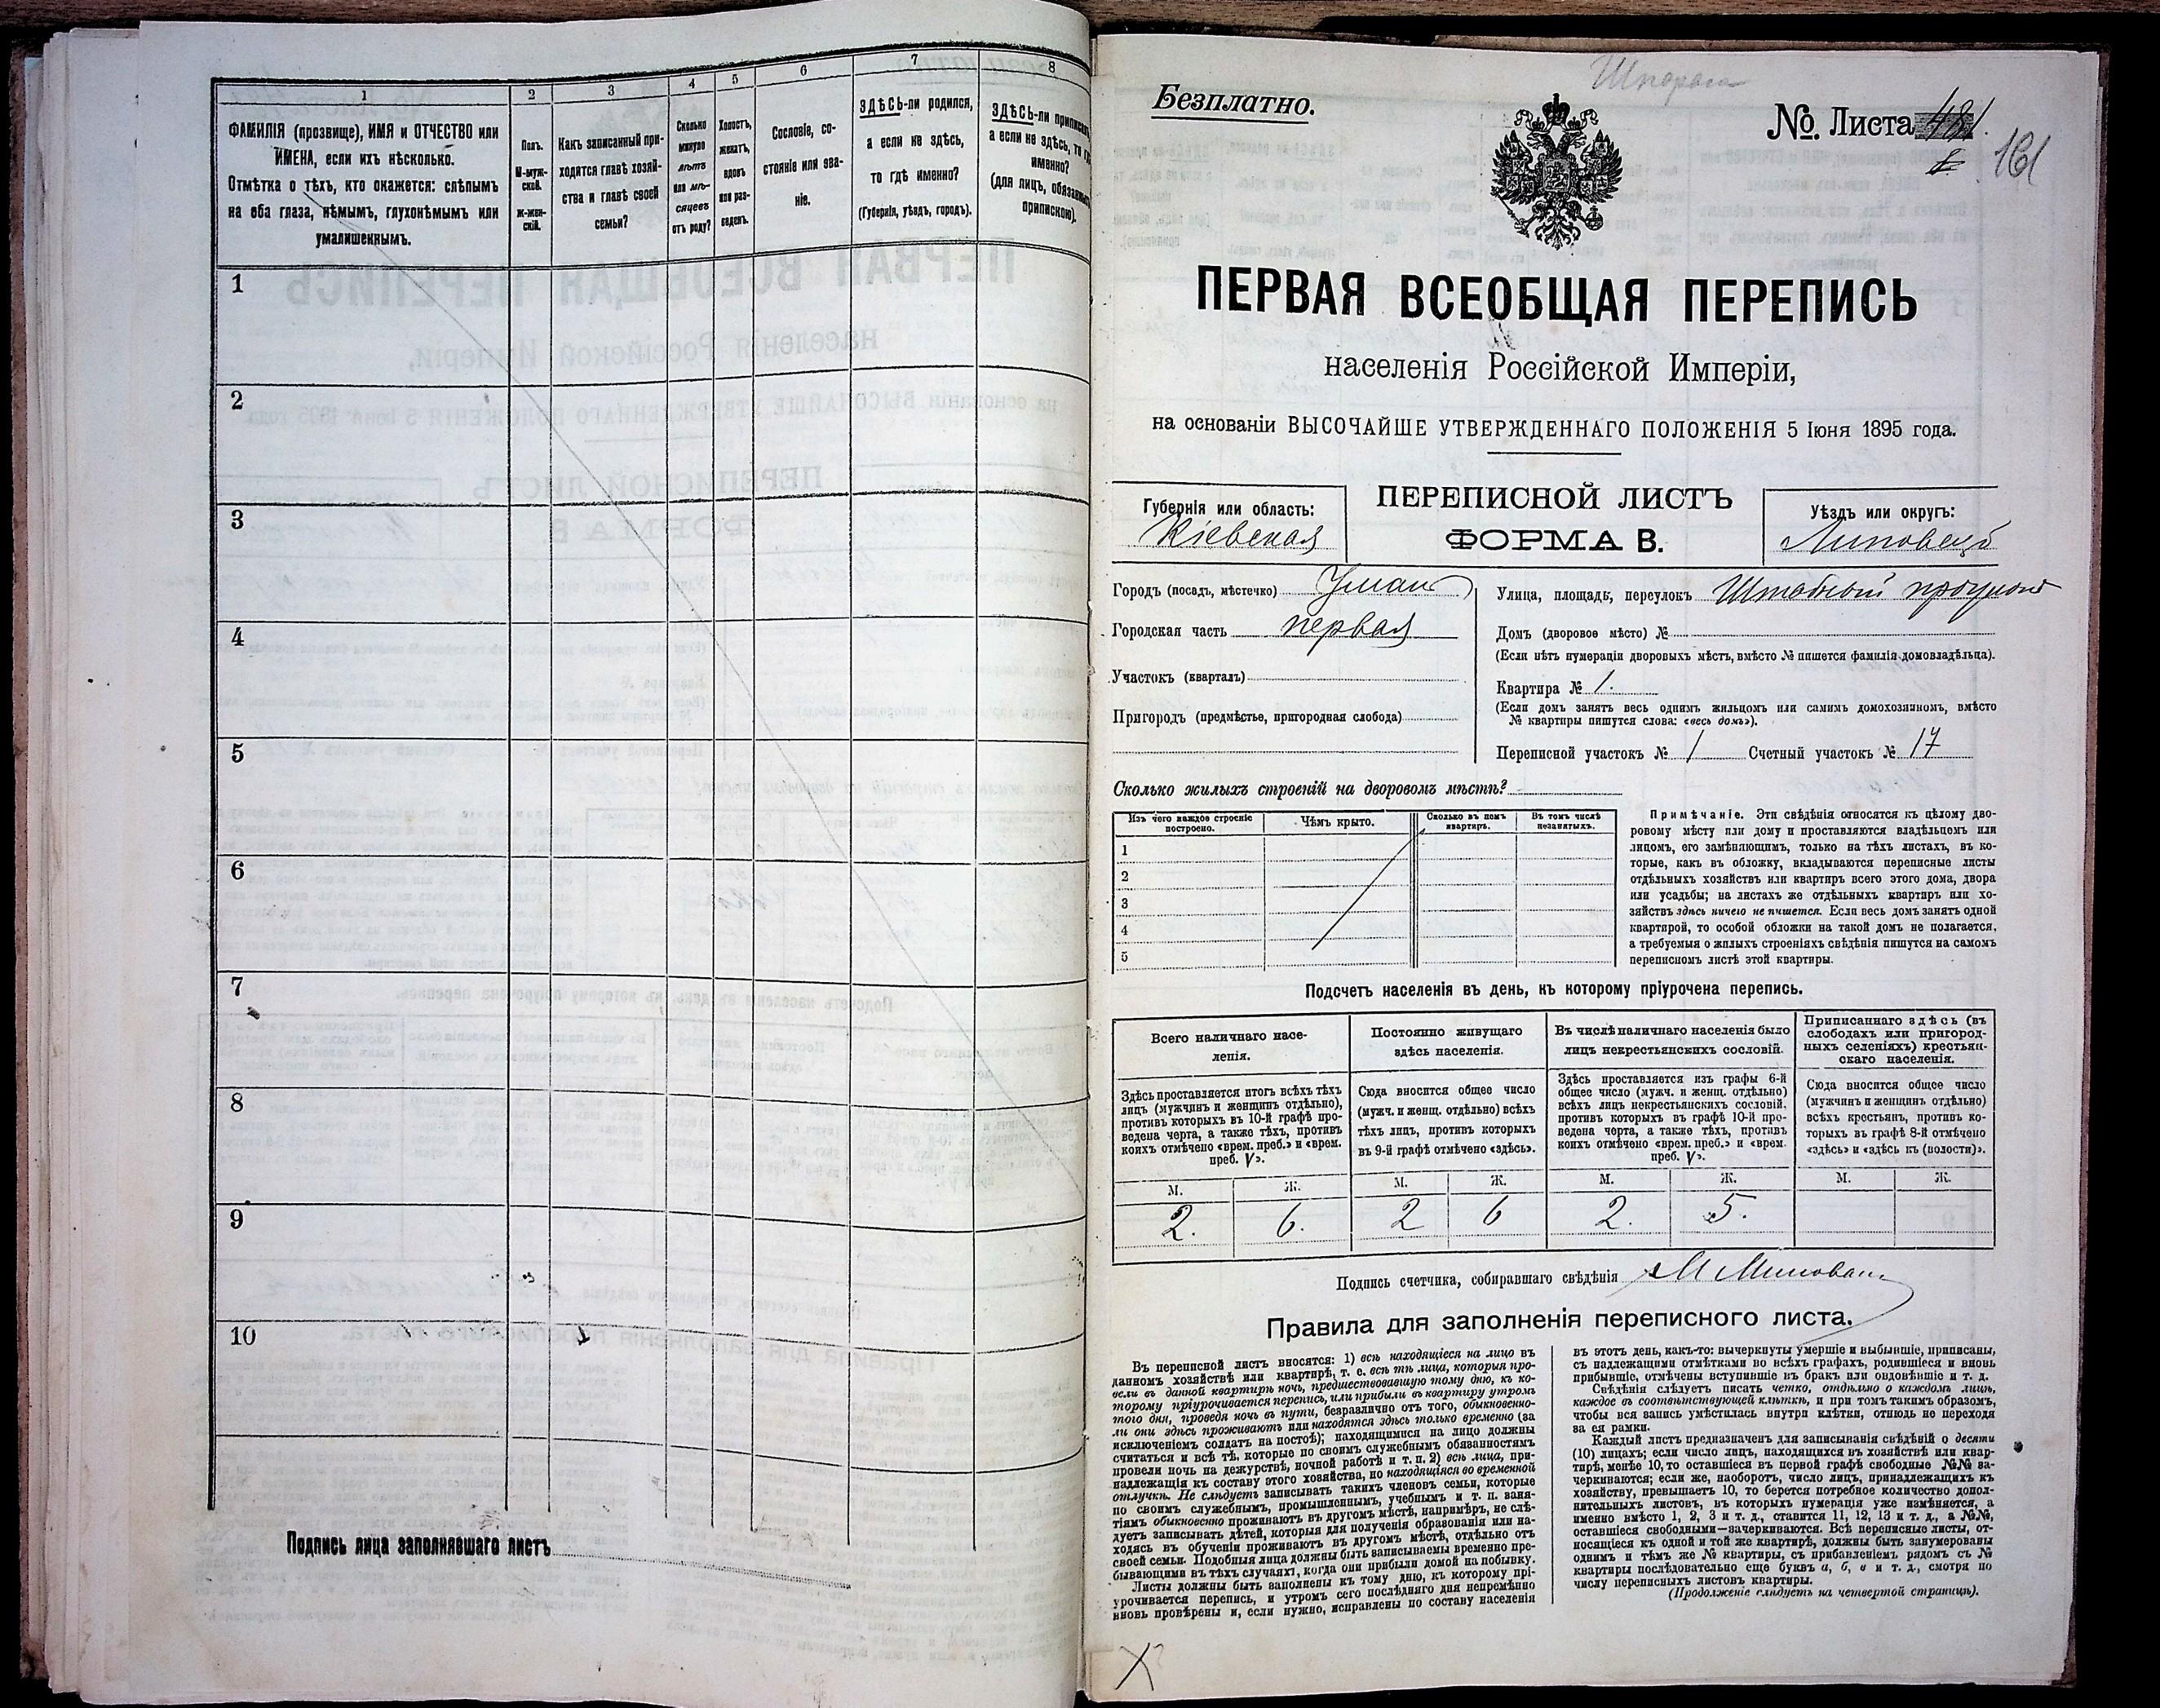 1
2
3
4
5
6
7
8
ФАМИЛІЯ (прозвище), ИМЯ и ОТЧЕСТВО или
ИМЕНА, если ихъ нѣсколько.
Отмѣтка о тѣхъ, кто окажется: слѣпымъ
на оба глаза, нѣмымъ, глухонѣмымъ или
умалишеннымъ.
Полъ.
М-муж-
ской.
Ж-жен-
скій.
Какъ записанный при-
ходится главѣ хозяй-
ства и главѣ своей
семьи?
Сколько
минуло
лѣтъ
или мѣ-
сяцевъ
отъ роду?
Холостъ,
женатъ,
вдовъ
или раз-
веденъ.
Сословіе, со-
стояніе или зва-
ніе.
ЗДѢСЬ-ли родился,
а если не здѣсь,
то гдѣ именно?
(Губернія, уѣздъ, городъ).
ЗДѢСЬ-ли приписанъ
а если не здѣсь, то гдѣ
именно?
(для лицъ, обязанныхъ
припискою).
1
2
3
4
5
6
7
8
9
10
Подпись лица заполнявшаго листъ
Безплатно.
№ Листа
161
ПЕРВАЯ ВСЕОБЩАЯ ПЕРЕПИСЬ
населенія Россійской Имперіи,
на основаніи ВЫСОЧАЙШЕ УТВЕРЖДЕННАГО ПОЛОЖЕНІЯ 5 Іюня 1895 года.
Губернія или область:
Кіевская
ПЕРЕПИСНОЙ ЛИСТЪ
ФОРМА В.
Уѣздъ или округъ:
Липовецъ
Городъ (посадъ, мѣстечко) Умань
Городская часть первая
Участокъ (кварталъ)
Пригородъ (предмѣстье, пригородная слобода)
Улица, площадь, переулокъ Штабный
Домъ (дворовое мѣсто) №
(Если нѣтъ нумераціи дворовыхъ мѣстъ, вмѣсто № пишется фамилія домовладѣльца).
Квартира № 1.
(Если домъ занятъ весь однимъ жильцомъ или самимъ домохозяиномъ, вмѣсто
№ квартиры пишутся слова: «весь домъ»).
Переписной участокъ № 1 Счетный участокъ № 17
Сколько жилыхъ строеній на дворовомъ мѣстѣ?
Изъ чего каждое строеніе
построено.
Чѣмъ крыто.
Сколько въ немъ
квартиръ.
Въ томъ числѣ
незанятыхъ.
1
2
3
4
5
Примѣчаніе. Эти свѣдѣнія относятся къ цѣлому дво-
ровому мѣсту или дому и проставляются владѣльцемъ или
лицомъ, его замѣняющимъ, только на тѣхъ листахъ, въ ко-
торые, какъ въ обложку, вкладываются переписные листы
отдѣльныхъ хозяйствъ или квартиръ всего этого дома, двора
или усадьбы; на листахъ же отдѣльныхъ квартиръ или хо-
зяйствъ здѣсь ничего не пишется. Если весь домъ занятъ одной
квартирой, то особой обложки на такой домъ не полагается,
а требуемыя о жилыхъ строеніяхъ свѣдѣнія пишутся на самомъ
переписномъ листѣ этой квартиры.
Подсчетъ населенія въ день, къ которому пріурочена перепись.
Всего наличнаго насе-
ленія.
Постоянно живущаго
здѣсь населенія.
Въ числѣ наличнаго населенія было
лицъ некрестьянскихъ сословій.
Приписаннаго здѣсь (въ
слободахъ или пригород-
ныхъ селеніяхъ) крестьян-
скаго населенія.
Здѣсь проставляется итогъ всѣхъ тѣхъ
лицъ (мужчинъ и женщинъ отдѣльно),
противъ которыхъ въ 10-й графѣ про-
ведена черта, а также тѣхъ, противъ
коихъ отмѣчено «врем. преб.» и «врем.
преб. V».
Сюда вносится общее число
(мужч. и женщ. отдѣльно) всѣхъ
тѣхъ лицъ, противъ которыхъ
въ 9-й графѣ отмѣчено «здѣсь».
Здѣсь проставляется изъ графы 6-й
общее число (мужч. и женщ. отдѣльно)
всѣхъ лицъ некрестьянскихъ сословій,
противъ которыхъ въ графѣ 10-й про-
ведена черта, а также тѣхъ, противъ
коихъ отмѣчено «врем. преб.» и «врем.
преб. V».
Сюда вносится общее число
(мужчинъ и женщинъ отдѣльно)
всѣхъ крестьянъ, противъ ко-
торыхъ въ графѣ 8-й отмѣчено
«здѣсь» и «здѣсь къ (волости)».
М. Ж. М. Ж. М. Ж. М. Ж.
2. 6. 2 6 2. 5.
Подпись счетчика, собиравшаго свѣдѣнія
Правила для заполненія переписного листа.
Въ переписной листъ вносятся: 1) всѣ находящіеся на лицо въ
данномъ хозяйствѣ или квартирѣ, т. е. всѣ тѣ лица, которыя про-
вели въ данной квартирѣ ночь, предшествовавшую тому дню, къ ко-
торому пріурочивается перепись, или прибыли въ квартиру утромъ
того дня, проведя ночь въ пути, безразлично отъ того, обыкновенно-
ли они здѣсь проживаютъ или находятся здѣсь только временно (за
исключеніемъ солдатъ на постоѣ); находящимися на лицо должны
считаться и всѣ тѣ, которые по своимъ служебнымъ обязанностямъ
провели ночь на дежурствѣ, ночной работѣ и т. п. 2) всѣ лица, при-
надлежащія къ составу этого хозяйства, но находящіяся во временной
отлучкѣ. Не слѣдуетъ записывать такихъ членовъ семьи, которые
по своимъ служебнымъ, промышленнымъ, учебнымъ и т. п. заня-
тіямъ обыкновенно проживаютъ въ другомъ мѣстѣ, напримѣръ, не слѣ-
дуетъ записывать дѣтей, которыя для полученія образованія или на-
ходясь въ обученіи проживаютъ въ другомъ мѣстѣ, отдѣльно отъ
своей семьи. Подобныя лица должны быть записываемы временно пре-
бывающими въ тѣхъ случаяхъ, когда они прибыли домой на побывку.
Листы должны быть заполнены къ тому дню, къ которому прі-
урочивается перепись, и утромъ сего послѣдняго дня непремѣнно
вновь провѣрены и, если нужно, исправлены по составу населенія
въ этотъ день, какъ-то: вычеркнуты умершіе и выбывшіе, приписаны,
съ надлежащими отмѣтками во всѣхъ графахъ, родившіеся и вновь
прибывшіе, отмѣчены вступившіе въ бракъ или овдовѣвшіе и т. д.
Свѣдѣнія слѣдуетъ писать четко, отдѣльно о каждомъ лицѣ,
каждое въ соотвѣтствующей клѣткѣ, и при томъ такимъ образомъ,
чтобы вся запись умѣстилась внутри клѣтки, отнюдь не переходя
за ея рамки.
Каждый листъ предназначенъ для записыванія свѣдѣній о десяти
(10) лицахъ; если число лицъ, находящихся въ хозяйствѣ или квар-
тирѣ, менѣе 10, то оставшіеся въ первой графѣ свободные №№ за-
черкиваются; если же, наоборотъ, число лицъ, принадлежащихъ къ
хозяйству, превышаетъ 10, то берется потребное количество допол-
нительныхъ листовъ, въ которыхъ нумерація уже измѣняется, а
именно вмѣсто 1, 2, 3 и т. д., ставится 11, 12, 13 и т. д., а №№,
оставшіеся свободными—зачеркиваются. Всѣ переписные листы, от-
носящіеся къ одной и той же квартирѣ, должны быть занумерованы
однимъ и тѣмъ же № квартиры, съ прибавленіемъ рядомъ съ №
квартиры послѣдовательно еще буквъ а, б, в и т. д., смотря по
числу переписныхъ листовъ квартиры.
(Продолженіе слѣдуетъ на четвертой страницѣ).